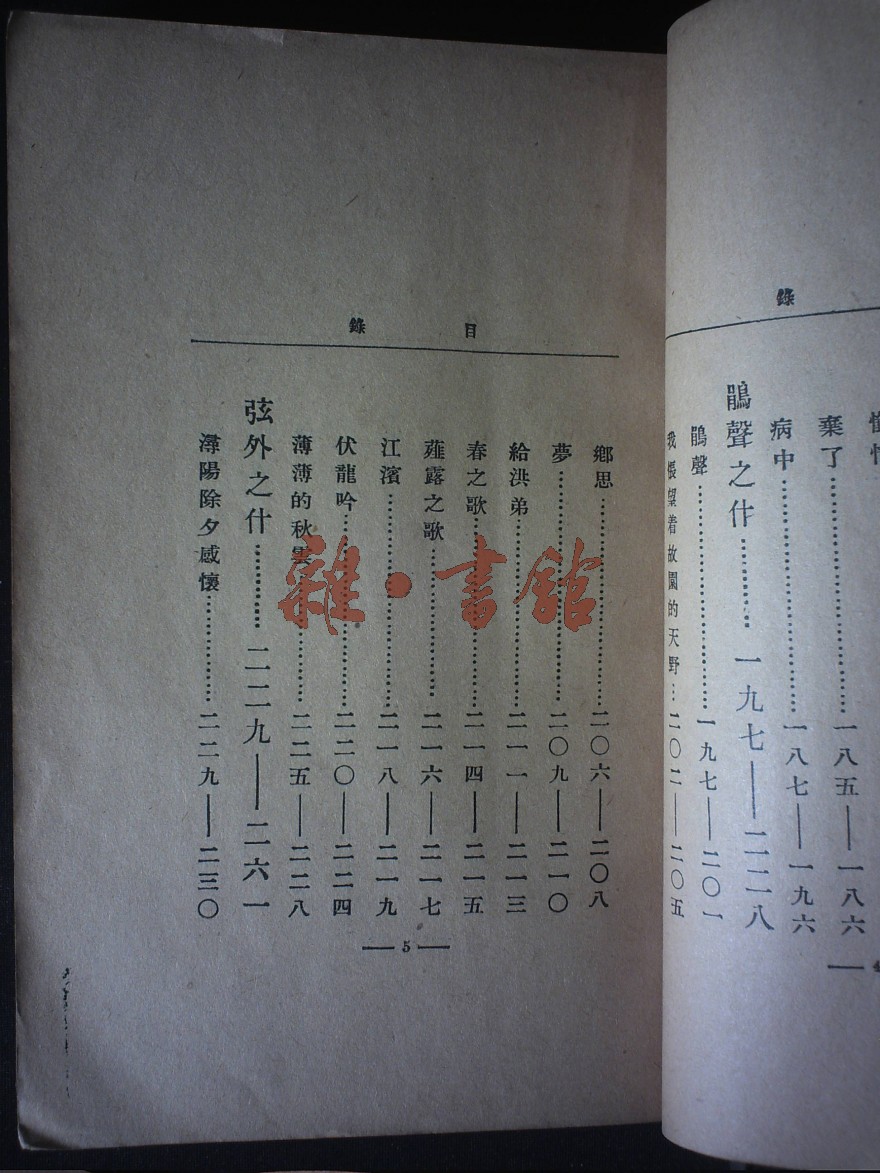 錄
棄了……一八五——一八六
病中……一八七——一九六
鵑聲之什……一九七——二二八
鵑聲……一九七——二〇一
我悵望着故園的天野…二〇二——二〇五
目錄
鄉思……二〇六——二〇八
夢……二〇九——二一〇
給洪弟……二一一——二一三
春之歌……二一四——二一五
薤露之歌……二一六——二一七
江濱……二一八——二一九
伏龍吟……二二〇——二二四
薄薄的秋雲……二二五——二二八
弦外之什……二二九——二六一
潯陽除夕感懷……二二九——二三〇
—5—
雜·書館